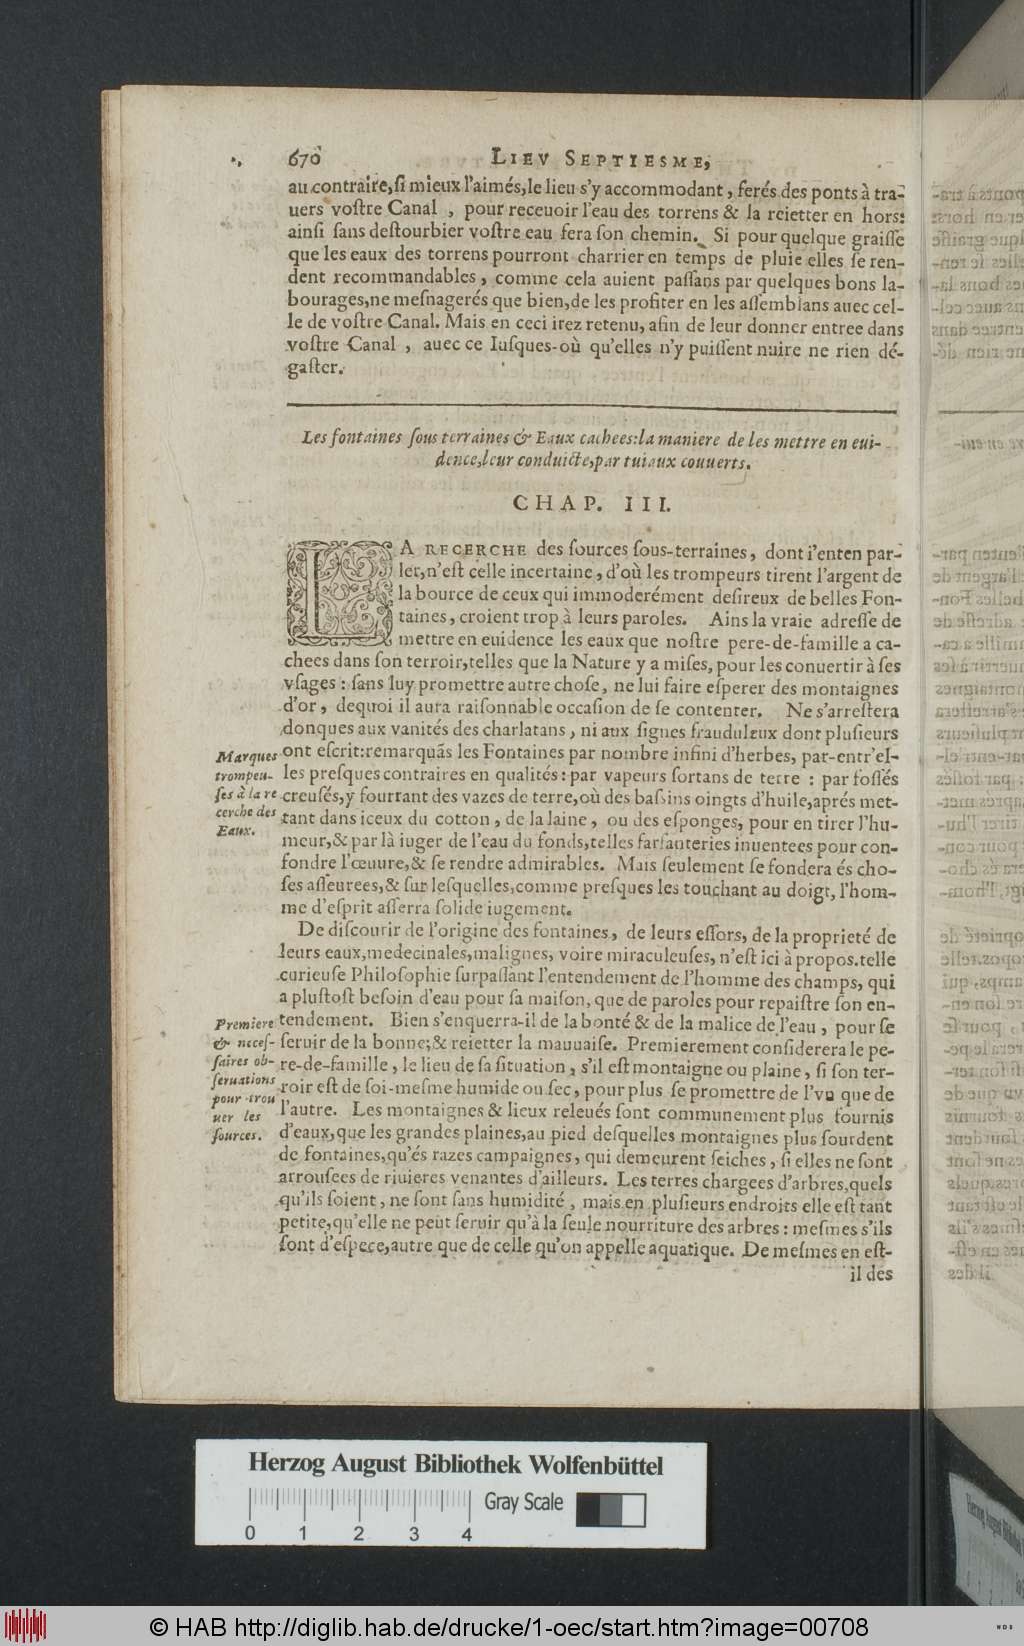 670 LIEV SEPTIESME,
au contraire, ſi mieux l'aimés, le lieu s'y accommodant, ferés des ponts à tra-
uers voſtre Canal, pour receuoir l'eau des torrens & la reietter en hors:
ainſi ſans deſtourbier voſtre eau fera ſon chemin. Si pour quelque graiſſe
que les eaux des torrens pourront charrier en temps de pluie elles ſe ren-
dent recommandables, comme cela auient paſſans par quelques bons la-
bourages, ne meſnagerés que bien, de les profiter en les aſſemblans auec cel-
le de voſtre Canal. Mais en ceci irez retenu, afin de leur donner entree dans
voſtre Canal, auec ce Iuſques-où qu'elles n'y puiſſent nuire ne rien dé-
gaſter.
Les fontaines ſous terraines & Eaux cachees: la maniere de les mettre en eui-
dence, leur conduicte, par tuiaux couuerts.
CHAP. III.
LA RECERCHE des ſources ſous-terraines, dont i'enten par-
ler, n'eſt celle incertaine, d'où les trompeurs tirent l'argent de
la bource de ceux qui immoderément deſireux de belles Fon-
taines, croient trop à leurs paroles. Ains la vraie adreſſe de
mettre en euidence les eaux que noſtre pere-de-famille a ca-
chees dans ſon terroir, telles que la Nature y a miſes, pour les conuertir à ſes
vſages: ſans luy promettre autre choſe, ne lui faire eſperer des montaignes
d'or, dequoi il aura raiſonnable occaſion de ſe contenter. Ne s'arreſtera
donques aux vanités des charlatans, ni aux ſignes frauduleux dont pluſieurs
ont eſcrit: remarquãs les Fontaines par nombre infini d'herbes, par-entr'el-
les preſques contraires en qualités: par vapeurs ſortans de terre: par foſſés
creuſés, y fourrant des vazes de terre, où des baſsins oingts d'huile, aprés met-
tant dans iceux du cotton, de la laine, ou des eſponges, pour en tirer l'hu-
meur, & par là iuger de l'eau du fonds, telles farfanteries inuentees pour con-
fondre l'œuure, & ſe rendre admirables. Mais ſeulement ſe fondera és cho-
ſes aſſeurees, & ſur leſquelles, comme preſques les touchant au doigt, l'hom-
me d'eſprit aſſerra ſolide iugement.
Marques
trompeu-
ſes à la re
cerche des
Eaux.
De diſcourir de l'origine des fontaines, de leurs eſſors, de la proprieté de
leurs eaux, medecinales, malignes, voire miraculeuſes, n'eſt ici à propos. telle
curieuſe Philoſophie ſurpaſſant l'entendement de l'homme des champs, qui
a pluſtoſt beſoin d'eau pour ſa maiſon, que de paroles pour repaiſtre ſon en-
tendement. Bien s'enquerra-il de la bonté & de la malice de l'eau, pour ſe
ſeruir de la bonne; & reietter la mauuaiſe. Premierement conſiderera le pe-
re-de-famille, le lieu de ſa ſituation, s'il eſt montaigne ou plaine, ſi ſon ter-
roir eſt de ſoi-meſme humide ou ſec, pour plus ſe promettre de l'vn que de
l'autre. Les montaignes & lieux releués ſont communement plus fournis
d'eaux, que les grandes plaines, au pied deſquelles montaignes plus ſourdent
de fontaines, qu'és razes campaignes, qui demeurent ſeiches, ſi elles ne ſont
arrouſees de riuieres venantes d'ailleurs. Les terres chargees d'arbres, quels
qu'ils ſoient, ne ſont ſans humidité, mais en pluſieurs endroits elle eſt tant
petite, qu'elle ne peut ſeruir qu'à la ſeule nourriture des arbres: meſmes s'ils
ſont d'eſpece, autre que de celle qu'on appelle aquatique. De meſmes en eſt-
il des
Premiere
& neceſ-
ſaires ob-
ſeruations
pour trou
uer les
ſources.
Herzog August Bibliothek Wolfenbüttel
Gray Scale
0 1 2 3 4
© HAB http://diglib.hab.de/drucke/1-oec/start.htm?image=00708